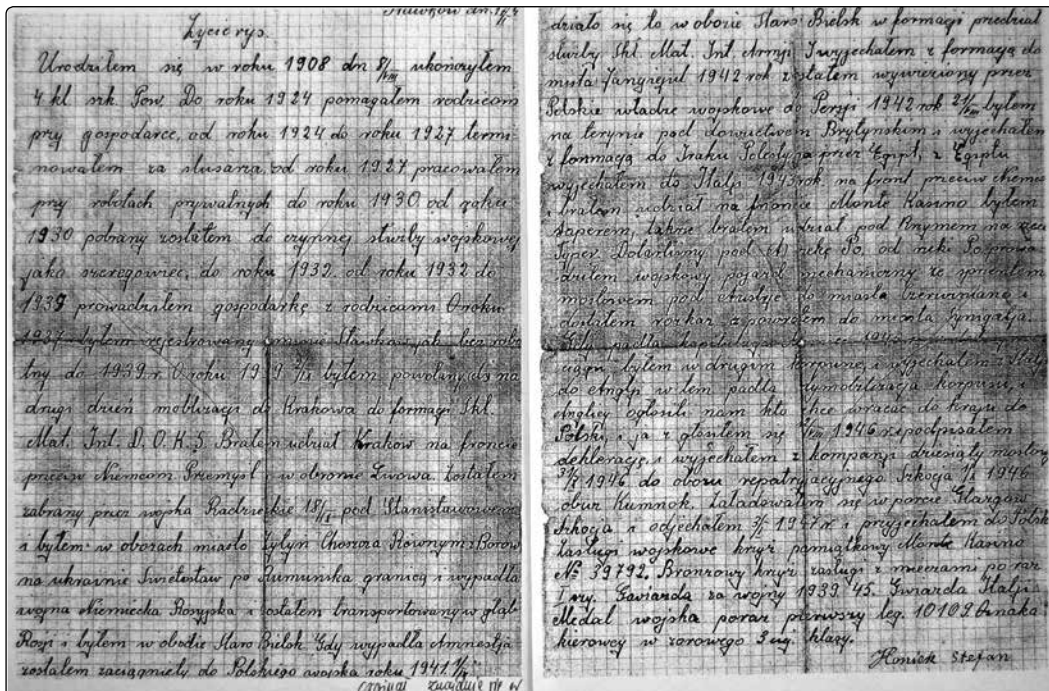 Sławków dn.
Życiorys.
Urodziłem się w roku 1908 dn 8/VIII ukończyłem
4 kl. szk. Pow. Do roku 1924 pomagałem rodzicom
przy gospodarce, od roku 1924 do roku 1927 termi-
nowałem za ślusarza, od roku 1927 pracowałem
przy robotach prywatnych do roku 1930 od roku
1930 pobrany zostałem do czynnej służby wojskowej
jako szeregowiec, do roku 1932. od roku 1932 do
1937 prowadziłem gospodarkę z rodzicami O roku
1937 byłem rejestrowany Sławków jak bezrobo
tny do 1939 r. O roku 1939 byłem powołany do na
drugi dzień moblizacji do Krakowa do formacji Skł.
Mat. Int. D. O. K. 5. Brałem udział Kraków na froncie
przeciw Niemcom Przemyśl i w obronie Lwowa. Zostałem
zabrany przez wojska Radzieckie 18/ pod Stanisławowem
i byłem w obozach miasto Żytyn Chorora Rownym
na ukrainie Świetosław po Rumunska granicę i wypadła
wojna Niemiecka Rosyjska i zostałem transportowany w głąb
Rosji i byłem w obozie Staro Bielsk Gdy wypadła Amnestja
zostałem zaciągniety do Polskiego wojska roku 1941
znajduje się w
działo się to w obozie Staro Bielsk w formacji przedział
służby Skł. Mat. Int Armji I wyjechałem z formacją do
miasta Jangregul 1942 rok zostałem wywieziony przez
Polskie władze wojskowe do Persji 1942 rok byłem
na terynie pod dowuctwem Brytynskim i wyjechałem
z formacją do Iraku Palestyna przez Egipt, z Egiptu
wyjechałem do Italji 1943 rok na front przeciw Niemcą
i brałem udział na froncie Monte Kasino byłem
saperem, także brałem udział pod Rzymem na rzece
Typer. Dotarliśmy pod (A) rekę Po, od reki Po prowa
dziłem wojskowy pojazd mechaniczny ze sprzentem
mostowem pod do miasta i
dostałem rozkaz z powrotem do miasta Synigalja.
Gdy padła kapitulacja 1945
byłem w drugim korpusie, i wyjechałem z Italji
do Anglji w tem padła dymobilizacja korpusu, i
Anglicy ogłosili nam kto chce wracać do kraju do
Polski, i ja z głosiłem się 1946 r. i podpisałem
deklerację, i wyjechałem z kompanji dziesiąty mostowy
1946 do obozu repatryjacyjnego Szkocja 1946
obuz Kumnok. Załadowałem się w porcie Glazgów
Szkocja i odjechałem 1947 r i przyjechałem do Polski
Zasługi wojskowe krzyż pamiątkowy Monte Kasino
№ 39792. Bronzowy krzyż zasługi z mieczami po raz
1 szy. Gwiazda za wojny 1939-45. Gwiazda Italji
Medal wojska poraz pierwszy leg. 10109. Oznaka
kierowcy w zorowego 3 ciej klasy.
Honick Stefan